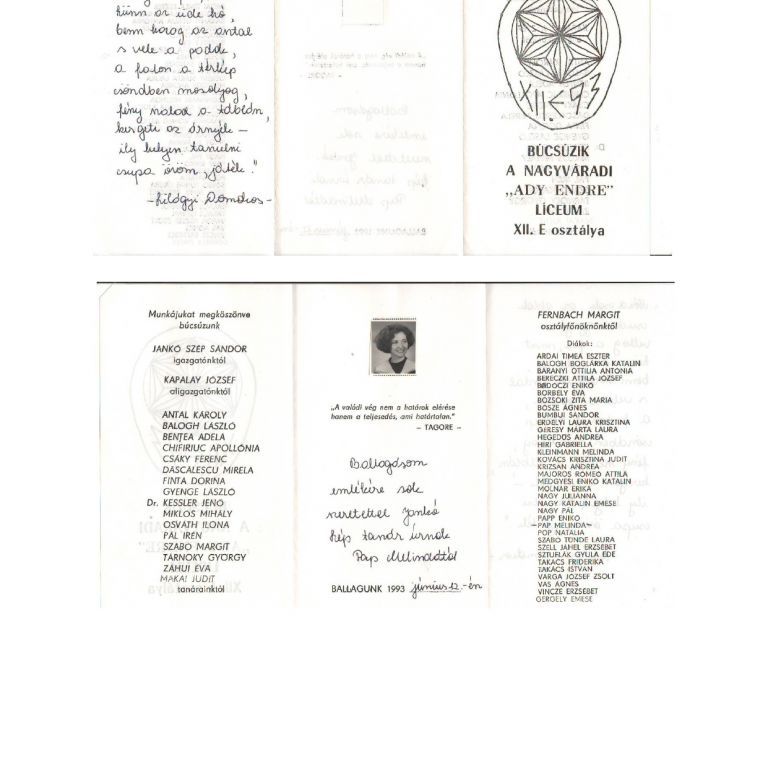 künn az üde hó,
benn harag az antal
s vele a padok,
a falon a térkép
csöndben mosolyog,
fény nalad a táblán,
kergeti az árnyék –
ily helyen tanulni
csupa öröm, játék."
-Kilágyi Domokos-
XII.E 93
BÚCSÚZIK
A NAGYVÁRADI
„ADY ENDRE"
LÍCEUM
XII. E osztálya
Munkájukat megköszönve
búcsúzunk
JANKÓ SZÉP SÁNDOR
igazgatónktól
KAPALAY JÓZSEF
aligazgatónktól
ANTAL KÁROLY
BALOGH LÁSZLÓ
BENȚEA ADELA
CHIFIRIUC APOLLÓNIA
CSÁKY FERENC
DĂSCĂLESCU MIRELA
FINTA DORINA
GYENGE LÁSZLÓ
Dr. KESSLER JENŐ
MIKLÓS MIHÁLY
OSVÁTH ILONA
PÁL IRÉN
SZABÓ MARGIT
TÁRNOKY GYÖRGY
ZÁHUI ÉVA
MAKAI JUDIT
tanárainktól
„A valódi vég nem a határok elérése
hanem a teljesedés, ami határtalan."
– TAGORE –
Ballagásom
emlékére sok
szeretettel Jankó
Szép tanár úrnak
Pap Melindától
BALLAGUNK 1993 június 12.-én
FERNBACH MARGIT
osztályfőnöknőnktől
Diákok:
ARDAI TIMEA ESZTER
BALOGH BOGLÁRKA KATALIN
BARÁNYI OTTILIA ANTÓNIA
BERECZKI ATTILA JÓZSEF
BÓDÓCZI ENIKŐ
BORBÉLY ÉVA
BOZSOKI ZITA MÁRIA
BŐSZE ÁGNES
BUMBUI SÁNDOR
ERDÉLYI LAURA KRISZTINA
GERESY MÁRTA LAURA
HEGEDŰS ANDREA
HIRI GABRIELLA
KLEINMANN MELINDA
KOVÁCS KRISZTINA JUDIT
KRIZSÁN ANDREA
MAJOROS ROMEO ATTILA
MEDGYESI ENIKŐ KATALIN
MOLNÁR ERIKA
NAGY JULIANNA
NAGY KATALIN EMESE
NAGY PÁL
PAPP ENIKŐ
–PAP MELINDA–
POP NATÁLIA
SZABÓ TÜNDE LAURA
SZÉLL JÁHEL ERZSÉBET
SZTUFLÁK GYULA EDE
TAKÁCS FRIDERIKA
TAKÁCS ISTVÁN
VARGA JÓZSEF ZSOLT
VAS ÁGNES
VINCZE ERZSÉBET
GERGELY EMESE